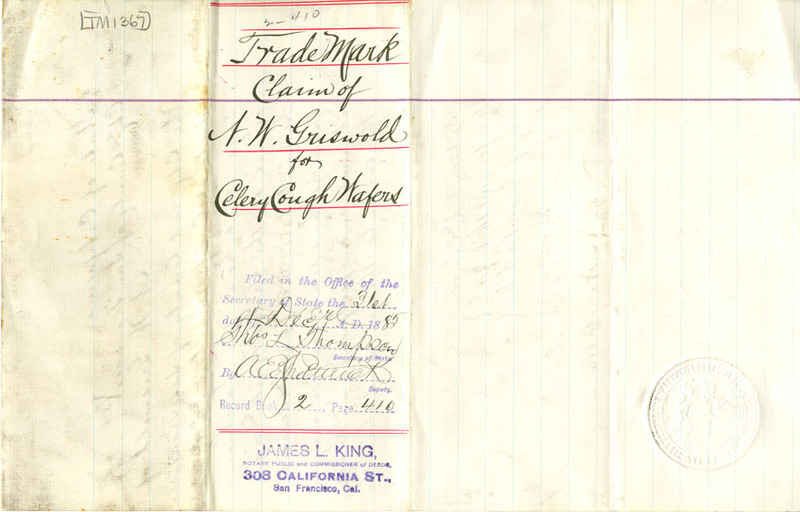 [TM1367]
2-410
Trade Mark
Claim of
N. W. Griswold
for
Celery Cough Wafers
Filed in the Office of the
Secretary of State the 21st
day of Decr A. D. 1885
Thos L Thompson
Secretary of State
By
Deputy.
Record Book 2, Page 410
JAMES L. KING,
NOTARY PUBLIC and COMMISSIONER of DEEDS,
308 CALIFORNIA ST.,
San Francisco, Cal.